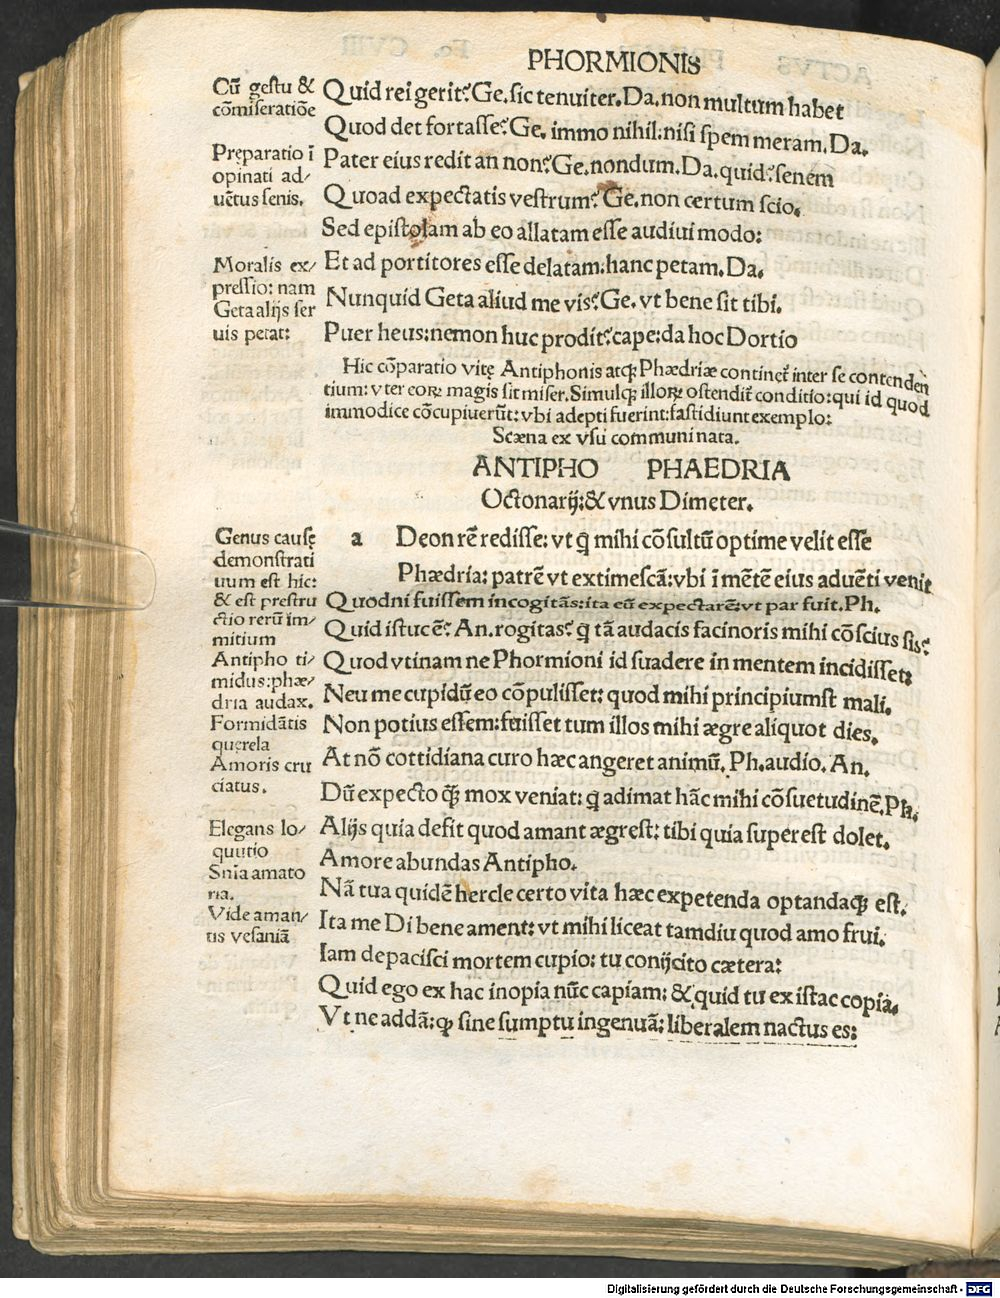 PHORMIONIS
Cū gestu &
cōmiseratiōe
Quid rei gerit? Ge. sic tenuiter. Da. non multum habet
Quod det fortasse? Ge. immo nihil: nisi spem meram. Da.
Pręparatio ī
opinati ad/
uētus senis.
Pater eius redit an non? Ge. nondum. Da. quid? senem
Quoad expectatis vestrum? Ge. non certum scio.
Sed epistolam ab eo allatam esse audiui modo:
Moralis ex/
pressio: nam
Geta alijs ser
uis petat:
Et ad portitores esse delatam: hanc petam. Da.
Nunquid Geta aliud me vis? Ge. vt bene sit tibi.
Puer heus: nemon huc prodit? cape: da hoc Dortio
Hic cōparatio vitę Antiphonis atq; Phædriæ continet̄ inter se contenden
tium: vter eoꝝ magis sit miser. Simulq; illoꝝ ostendit̄ conditio: qui id quod
immodice cōcupiuerūt: vbi adepti fuerint: fastidiunt exemplo:
Scæna ex vsu communi nata.
ANTIPHO PHAEDRIA
Octonarij: & vnus Dimeter.
Genus causę
demonstrati
uum est hic:
& est pręstru
ctio rerū im/
mitium
a Deon rē redisse: vt q̄ mihi cōsultū optime velit esse
Phædria: patrē vt extimescā: vbi ī mētē eius aduēti venit
Quodni fuissem incogitās: ita eū expectarē: vt par fuit. Ph.
Quid istuc ē? An. rogitas? q̄ tā audacis facinoris mihi cōscius sis?
Antipho ti/
midus: phæ/
dria audax.
Formidātis
querela
Amoris cru
ciatus.
Quod vtinam ne Phormioni id suadere in mentem incidisset:
Neu me cupidū eo cōpulisset: quod mihi principiumst mali.
Non potius essem: fuisset tum illos mihi ægre aliquot dies.
At nō cottidiana curo hæc angeret animū. Ph. audio. An.
Dū expecto q̄ʒ mox veniat: q̄ adimat hāc mihi cōsuetudinē. Ph.
Elegans lo/
quutio
Snīa amato
ria.
Vide aman/
tis vesaniā
Alijs quia defit quod amant ægrest: tibi quia superest dolet.
Amore abundas Antipho.
Nā tua quidē hercle certo vita hæc expetenda optandaq; est.
Ita me Di bene ament: vt mihi liceat tamdiu quod amo frui.
Iam depacisci mortem cupio: tu conijcito cætera:
Quid ego ex hac inopia nūc capiam: & quid tu ex istac copia.
Vt ne addā: ꝙ sine sumptu ingenuā: liberalem nactus es:
Digitalisierung gefördert durch die Deutsche Forschungsgemeinschaft - DFG